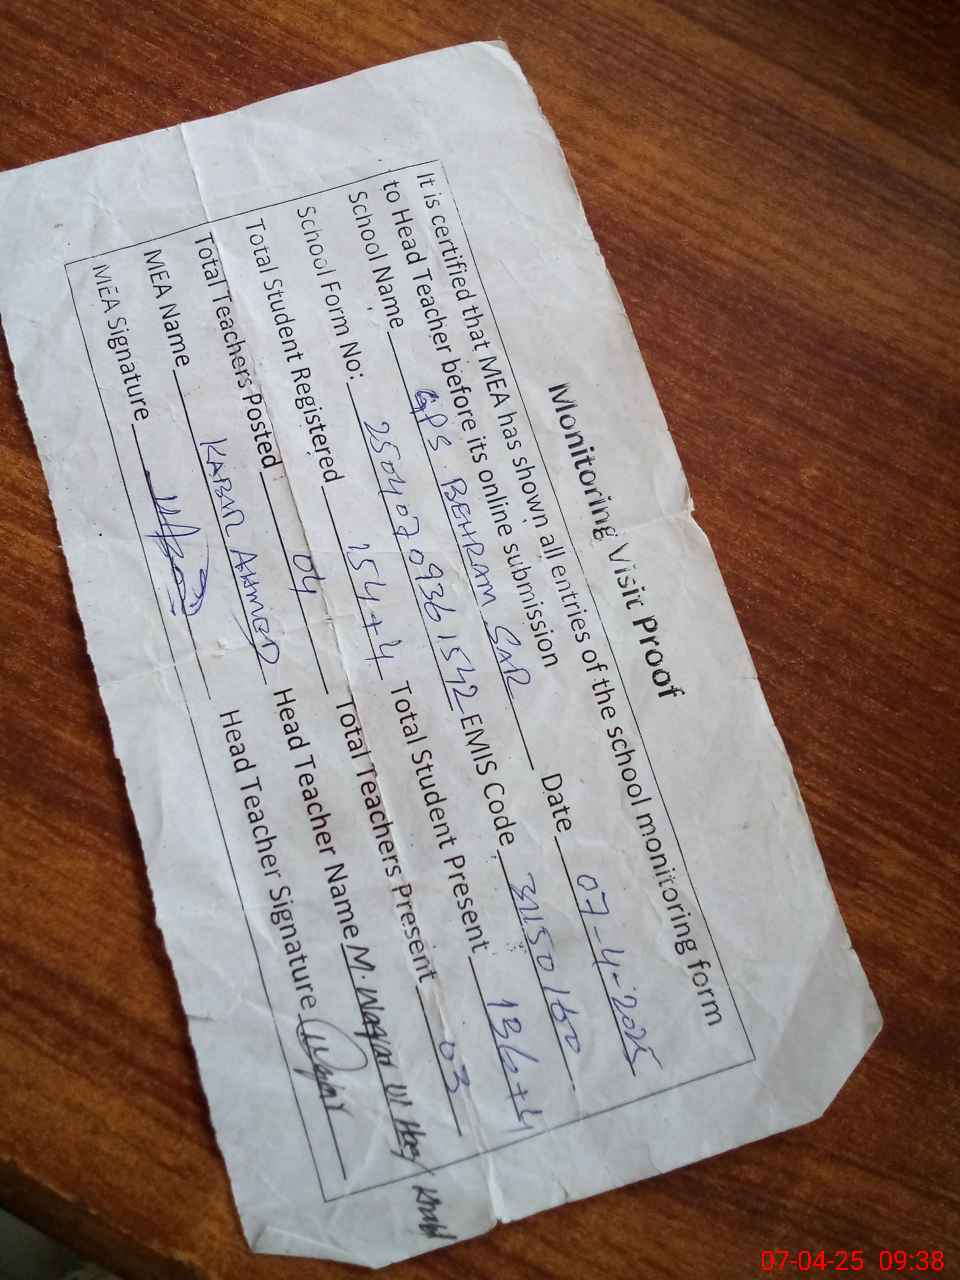 Monitoring Visit Proof
It is certified that MEA has shown all entries of the school monitoring form
to Head Teacher before its online submission
School Name GPS. BEHRAM SAR Date 07-4-2025
School Form No: 25040709361542 EMIS Code 31150160
Total Student Registered 154+4 Total Student Present 136+4
Total Teachers Posted 04 Total Teachers Present 03
MEA Name KABIR AHMED Head Teacher Name M. Waqar Ul Haq
MEA Signature Head Teacher Signature Waqar
07-04-25 09:38